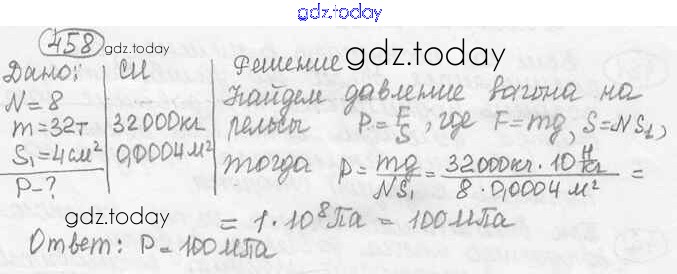 gdz.today
458 gdz.today
Дано: СИ
N=8
m=32т 32000кг
S₁=4см² 0,0004м²
P-?
Решение gdz.today
Найдем давление вагона на
рельсы P=F/S, где F=mg, S=NS₁,
тогда P=mg/NS₁=32000кг·10Н/кг/8·0,0004м²=
gdz.today
=1·10⁸Па=100МПа
Ответ: P=100МПа